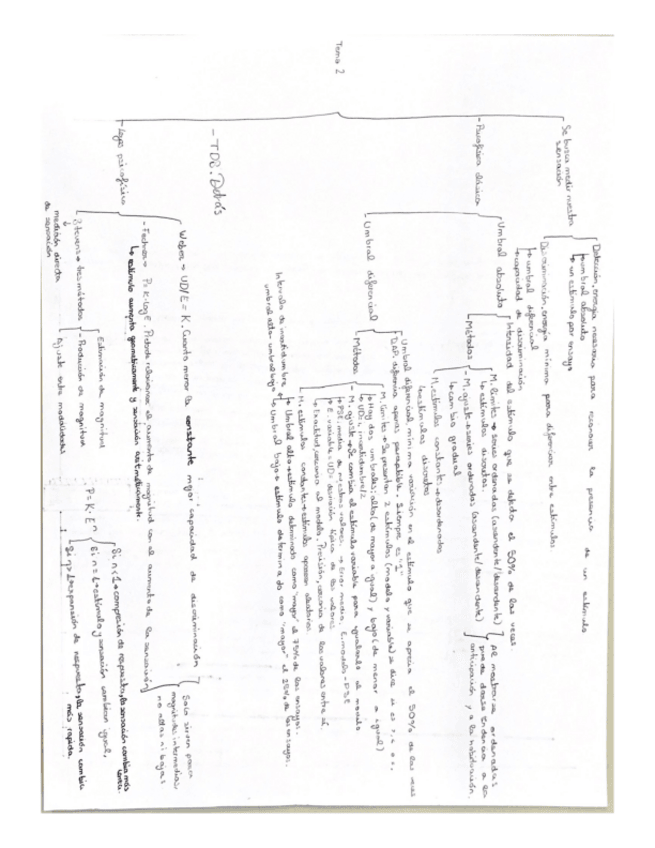 Tema 2
Se busca medir nuestra
sensación
Detección, energía necesaria para reconocer la presencia de un estímulo
↳ umbral absoluto
↳ un estímulo por ensayo
Discriminación, energía mínima para diferenciar entre estímulos
↳ umbral diferencial
↳ capacidad de discriminación
- Psicofísica clásica
Umbral absoluto
Intensidad del estímulo que se detecta el 50% de las veces
- Métodos
M. límites → series ordenadas (ascendente/descendente)
↳ estímulos discretos.
- M. ajuste → series ordenadas (ascendente/descendente)
↳ cambio gradual
Al mostrarse ordenadas
puede darse tendencia a la
anticipación y a la habituación.
M. estímulos constantes → desordenados
↳ estímulos discretos
- Umbral diferencial
Umbral diferencial, mínima variación en el estímulo que se aprecia el 50% de las veces
DAP, diferencia apenas perceptible. Siempre es
- Métodos
M. límites → Se presentan 2 estímulos (modelo y variable) se dice si es
↳ Hay dos umbrales: alto (de mayor a igual) y bajo (de menor a igual)
↳ UD = incertidumbre/2
M. ajuste → Se cambia el estímulo variable para igualarlo al modelo
↳ PSE, media de nuestros valores. → Error medio, E. modelo - PSE
↳ E. variable = UD: desviación típica de los valores
↳ Exactitud, cercanía al modelo. Precisión, cercanía de los valores entre sí.
M. estímulos constantes → estímulos aparecen aleatorios
↳ Umbral alto → estímulo determinado como "mayor" el 75% de los ensayos.
↳ Umbral bajo → estímulo determinado como "mayor" el 25% de los ensayos.
Intervalo de incertidumbre
umbral alto - umbral bajo
- TDS. Detrás
- Leyes psicofísicas
Weber → UD/E = K. Cuanto menor la constante mayor capacidad de discriminación
- Fechner → P = K · log E. Pretende relacionar el aumento de magnitud con el aumento de la sensación
↳ estímulo aumenta geométricamente y sensación aritméticamente.
Solo sirven para
magnitudes intermedias
no altas ni bajas
- Stevens → tres métodos
↓
medición directa
de sensación
Estimación de magnitud
- Producción de magnitud
Ajuste entre modalidades
P = K · Eⁿ
Si n < 1 → compresión de respuesta, la sensación cambia más
lenta.
Si n = 1 → estímulo y sensación cambian igual.
Si n > 1 → expansión de respuesta, la sensación cambia
más rápida.